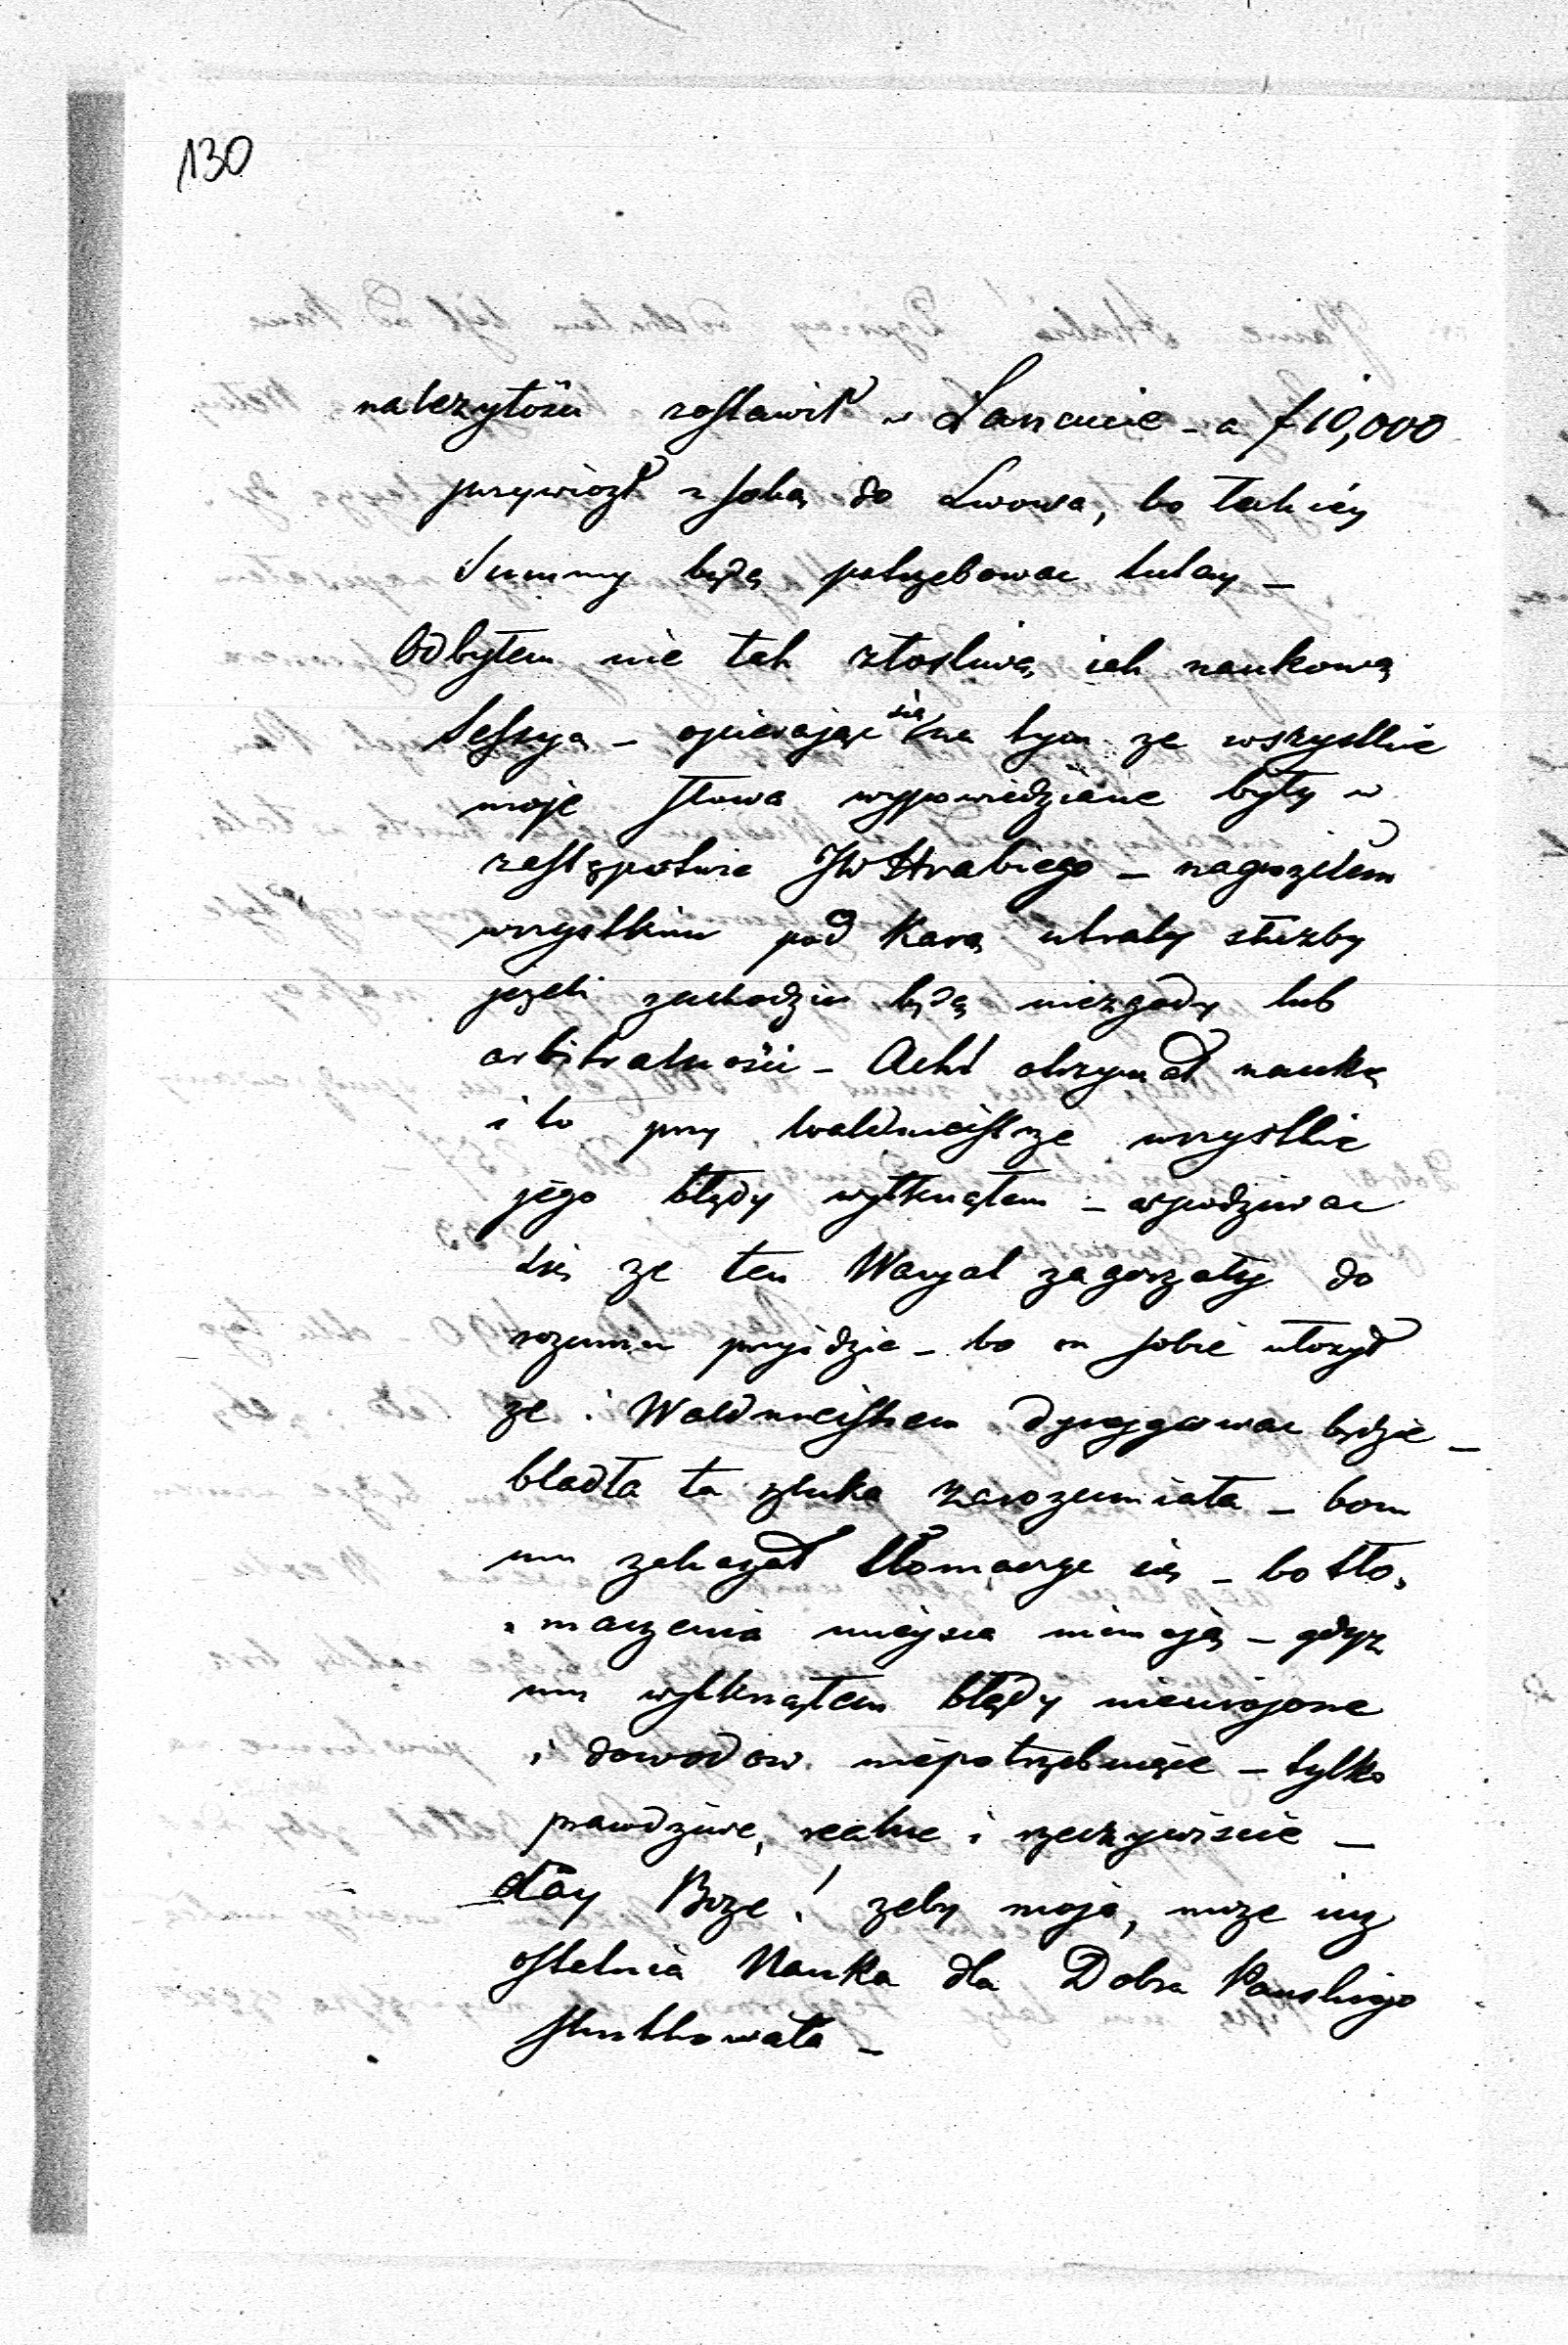 130
należytości zostawił w Łancucie – a f 10,000
przywiózł z sobą do Lwowa, bo takiéy
Summy będę potrzebowac tutay –
Odbyłem nie tak złosliwą jak naukową
Sessyą – opierając się na tym ze wszystkie
moje słowa wypowiedziane były w
zastępstwie JW Hrabiego – nagroziłem
wszystkim pod karą utraty służby
jezeli zachodzic będą niezgody lub
arbitralności – Acht otrzymał naukę
i to przy Waldmeistrze wszystkie
jego błędy wytknąłem – spodziewac
się ze ten Waryat zagorzały do
rozumu przyidzie – bo on sobie ułozył
ze i Waldmeistrem dyrygowac będzie –
bladła ta sztuka zarozumiała – bom
mu zakazał tłomaczyc się – bo tło-
maczenia mieysca niemają – gdyz
mu wytknąłem błędy nieurojone
i dowodow niepotrzebujące – tylko
prawdziwe, realne i rzeczywiscie –
day Boze! zeby moja, moze juz
ostatnia Nauka dla Dobra Panskiego
skutkowała –